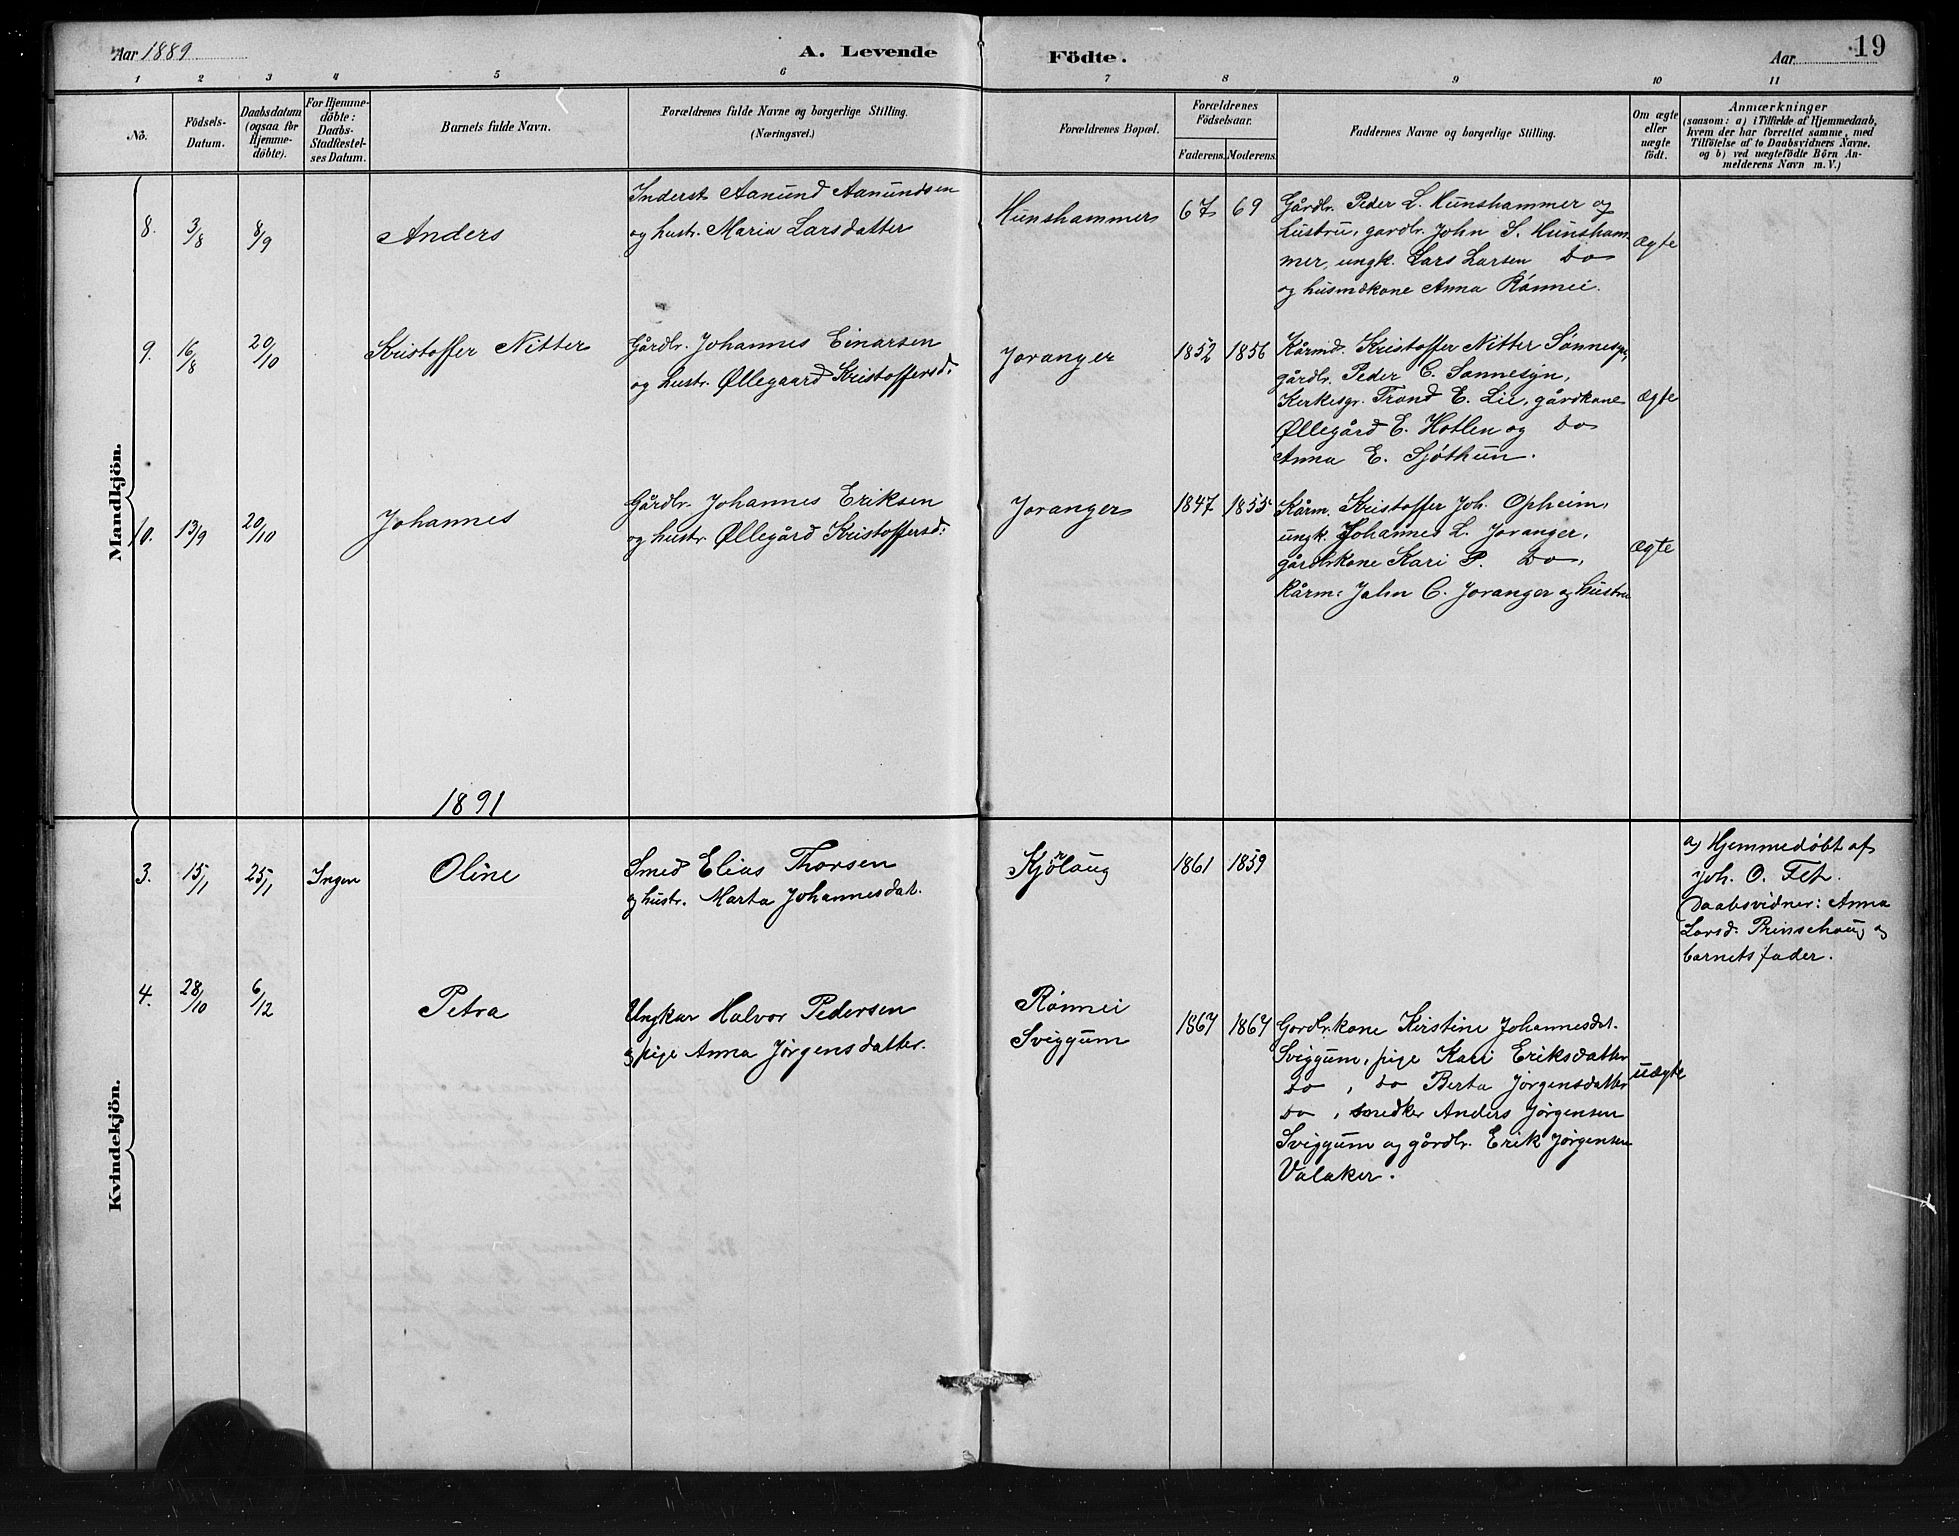 Aar 1889
A. Levende
Födte.
Aar
19
1 2 3 4 5 6 7 8 9 10 11
No.
Födsels-
Datum.
Daabsdatum
(ogsaa for
Hjemme-
döbte).
For Hjemme-
döbte:
Daabs-
Stadfæstel-
ses Datum.
Barnets fulde Navn.
Forældrenes fulde Navne og borgerlige Stilling.
(Næringsvei.)
Forældrenes Bopæl.
Forældrenes
Födselsaar.
Faderens. Moderens.
Faddernes Navne og borgerlige Stilling.
Om ægte
eller
uægte
født.
Anmærkninger
(saasom: a) i Tilfælde af Hjemmedaab,
hvem der har forrettet samme, med
Tilföielse af to Daabsvidners Navne.
og b) ved uægtefödte Börn An-
melderens Navn m. V.)
Mandkjön.
8. 3/8 8/9 Anders
Inderst Aanund Aanundsen
og hustr. Maria Larsdatter
Hunshammer 67 69
Gårdbr. Peder L. Hunshammer og
hustru, gardbr. John S. Hunsham-
mer, ungk. Lars Larsen Do
og husmdkone Anna Rónnei.
Ægte
9. 16/8 20/10 Kristoffer Nitter
Gårdbr. Johannes Einarsen
og hustr. Øllegaard Kristoffersd.
Joranger 1852 1856
Kårmd. Kristoffer Nitter Sønnesyn,
gårdbr. Peder C. Sønnesyn,
Kirkesgr. Trond E. Lie, gårdkone
Øllegård E. Hotlen og Do
Anna E. Sjøthun.
Ægte
10. 13/9 20/10 Johannes
Gårdbr. Johannes Eriksen
og hustr. Øllegård Kristoffersd.
Joranger 1847 1855
Kårm. Kristoffer Joh. Opheim,
ungk. Johannes L. Joranger,
gårdbrkone Kari P. Do,
Kårm. John C. Joranger og hustru
Ægte
1891
Kvindekjön.
3. 15/1 25/1 Ingen Oline
Smed Elias Thorsen
og hustr. Marta Johannesdat.
Kjørlaug 1861 1859
a) Hjemmedøbt af
Joh. O. Fet.
Daabsvidner: Anna
Larsd. Prinsehaug og
barnets fader.
4. 28/10 6/12 Petra
Ungkar Halvor Pedersen
og pige Anna Jørgensdatter.
Rónnei
Sviggum
1867 1867
Gardbrkone Kirstine Johannesdat.
Sviggum, pige Kari Eriksdatter
do, do Berta Jørgensdatter
do, snedker Anders Jørgensen
Sviggum og gårdbr. Erik Jørgensen
Valaker.
uægte